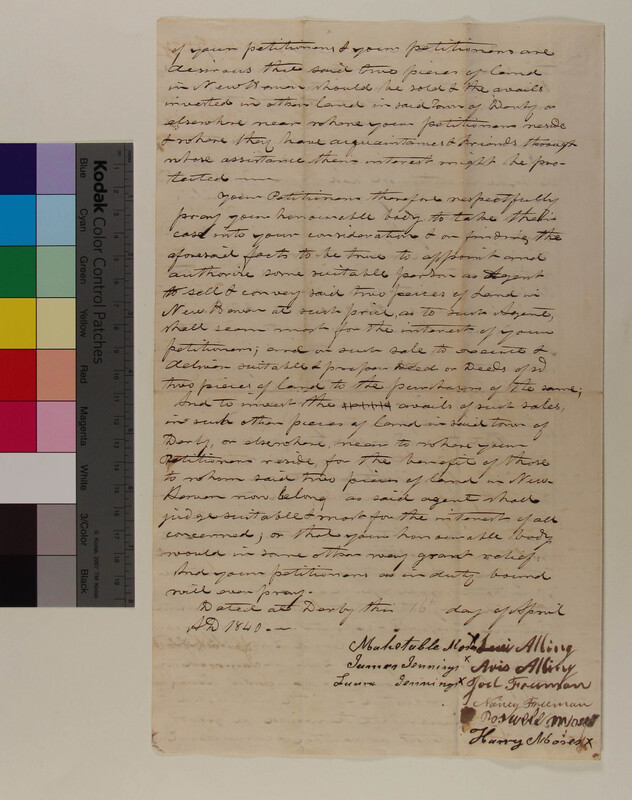 of your petitioners & your petitioners are
desirous that said two pieces of land
in New Haven should be sold & the avails
invested in other land in said town of Derby or
elsewhere near where your petitioners reside
& where they have acquaintances & friends through
whose assistance their interest might be pro-
tected
Your Petitioners therefore respectfully
pray your honourable body to take their
case into your consideration & on finding the
aforesaid facts to be true to appoint and
authorise some suitable person as Agent
to sell & convey said two pieces of Land in
New Haven at such price, as to such Agent,
shall seem most for the interest of your
petitioners; and on such sale to execute &
deliver suitable & proper Deed or Deeds of sd
two pieces of land to the purchasers of the same;
And to invest the avails of such sales,
in such other pieces of land in said town of
Derby, or elsewhere, near to where your
Petitioners reside, for the benefit of those
to whom said two pieces of land in New-
Haven now belong as said agent shall
judge suitable & most for the interest of all
concerned; or that your honourable body
would in some other way grant relief.
And your petitioners as in duty bound
will ever pray.
Dated at Derby this 16 day of April
AD 1840.
Mahetable Moses x Levi Alling
James Jennings x Avis Alling
Laura Jennings x Joel Freeman
Nancy Freeman
Roswell Moses
Harry Moses x
Kodak Color Control Patches
Blue
Cyan
Green
Yellow
Red
Magenta
White
3/Color
Black
© Kodak, 2007 TM: Kodak